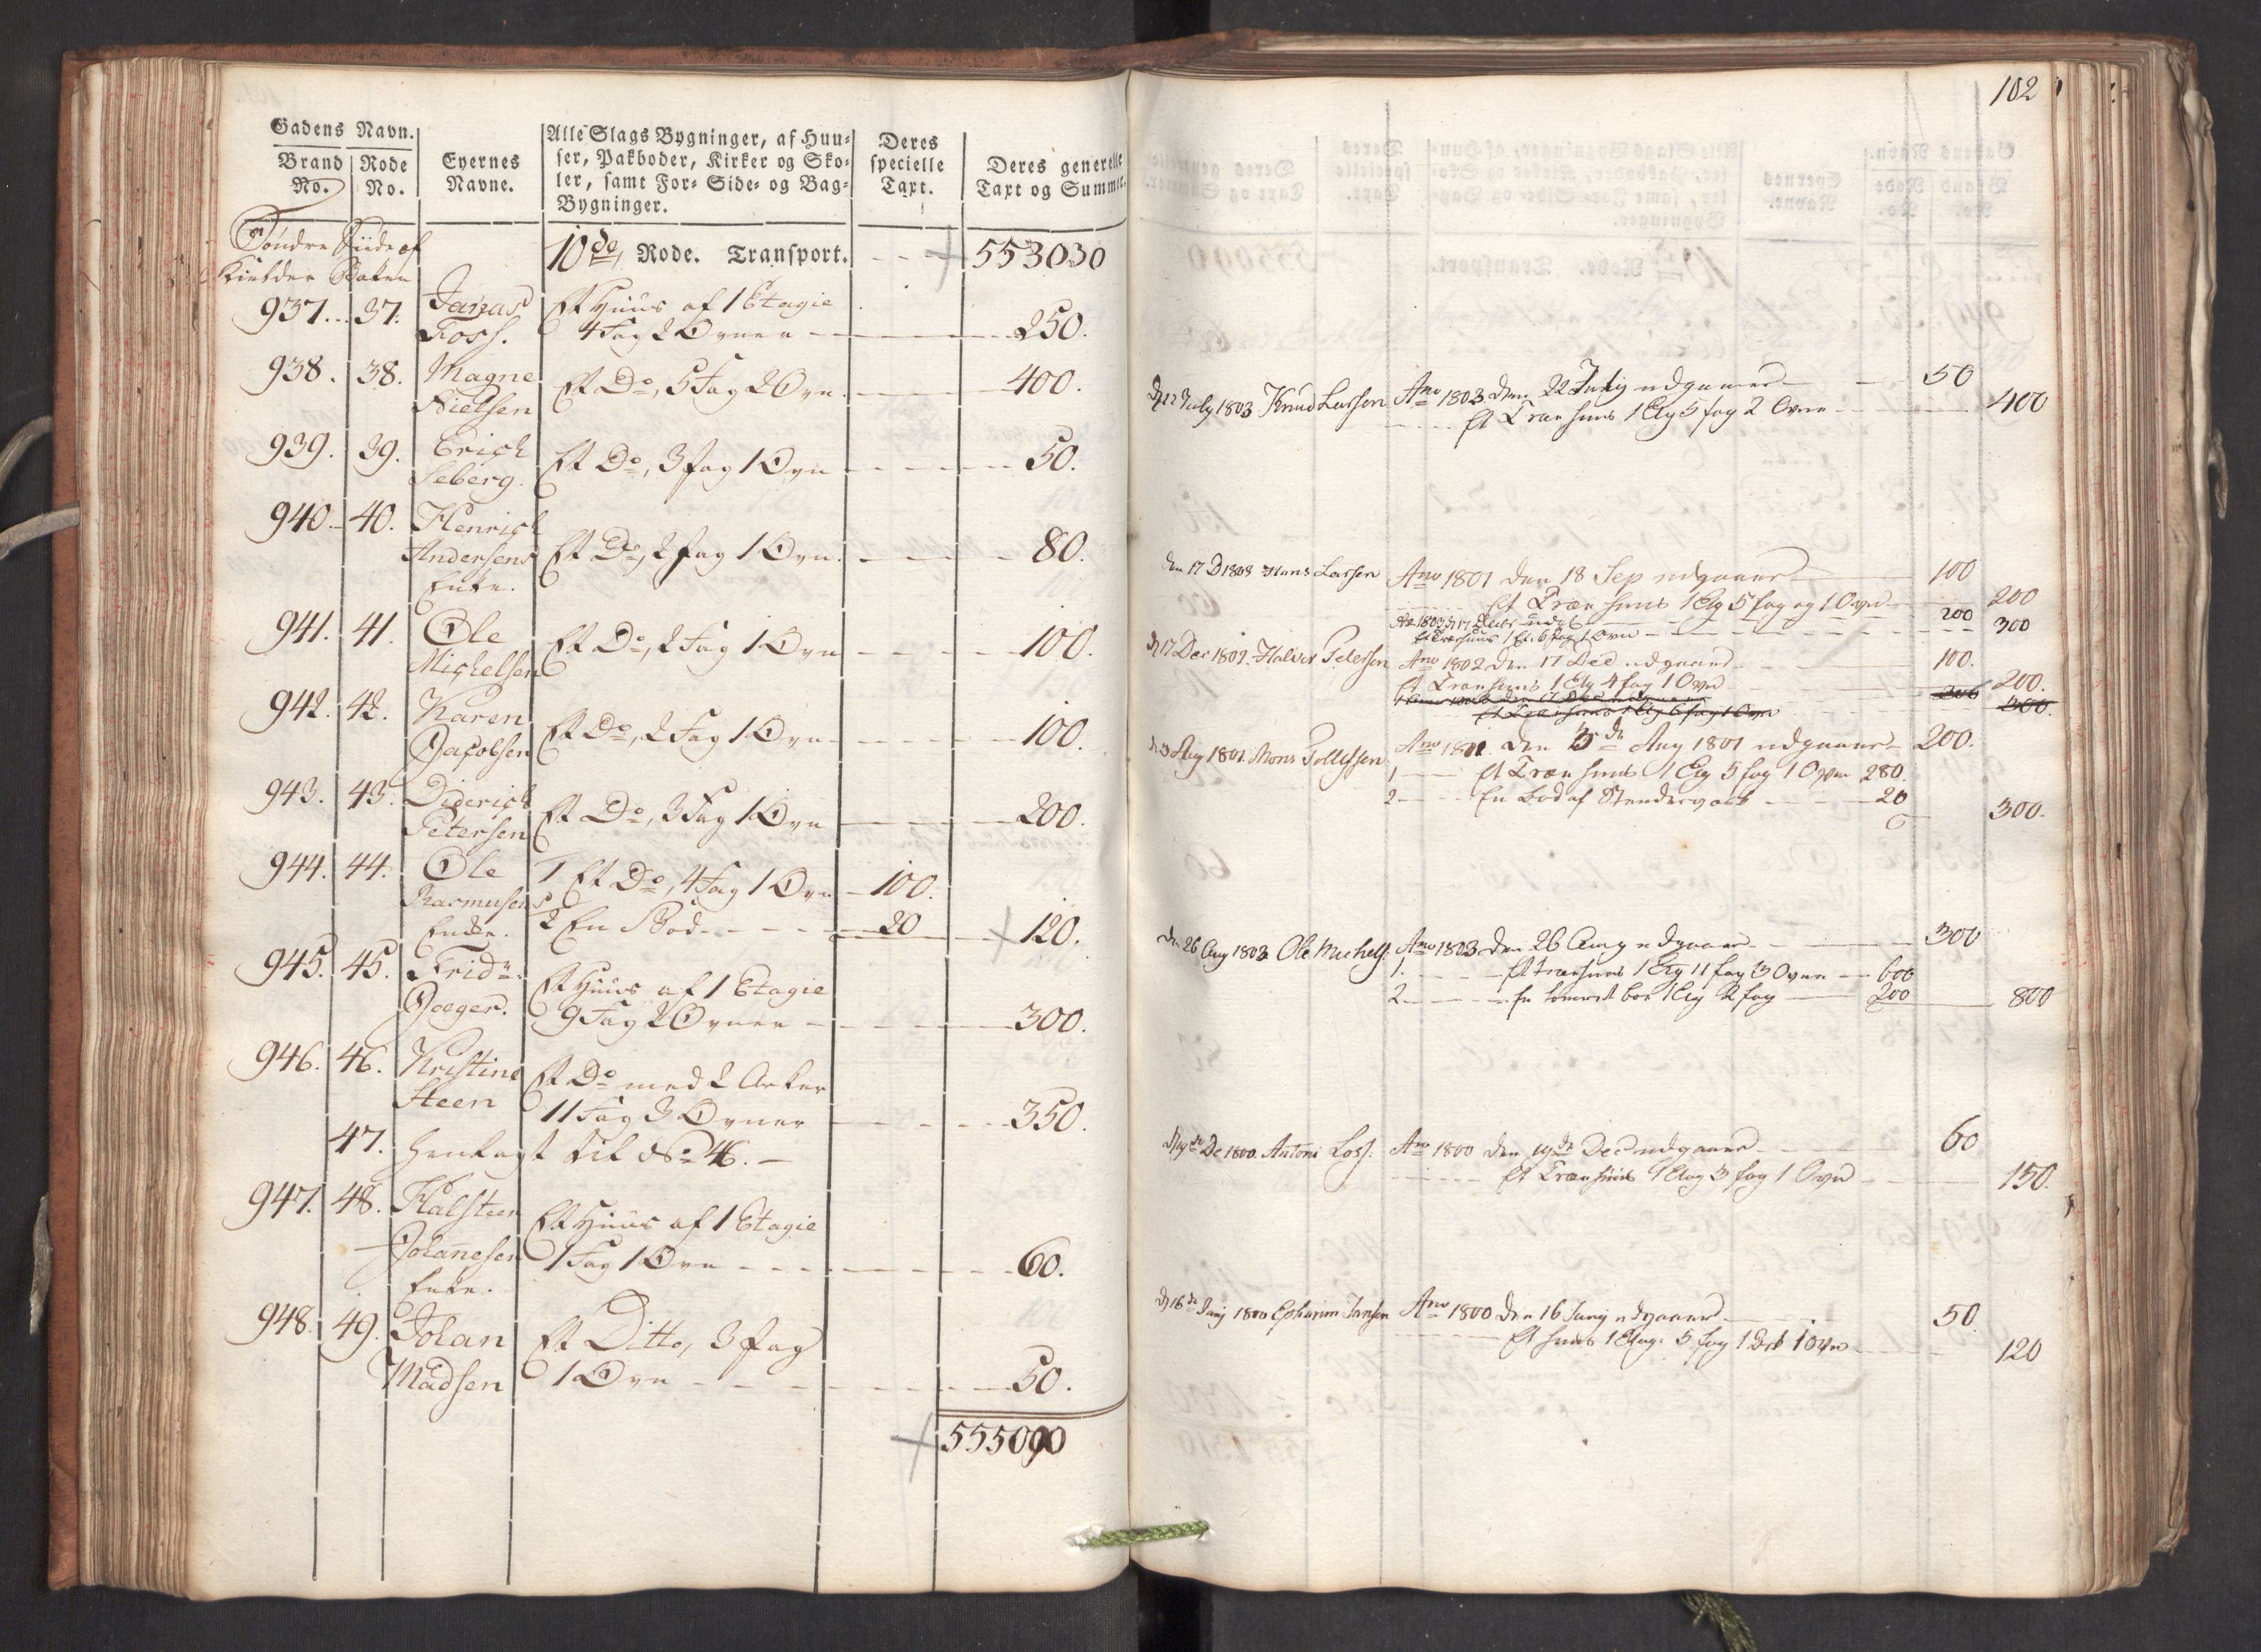 Gadens Navn.
Brand No. | Rode No. | Eyernes Navne. | Alle Slags Bygninger, af Huu-
ser, Pakboder, Kirker og Sko-
ler, samt For- Side- og Bag-
Bygninger. | Deres specielle Taxt. | Deres generelle Taxt og Summe.
Søndre Siide af
10de Rode. Transport. 553030
937. 37. Jonas Et Huus af 1 Etagie
Foss. 4 Fag 2 Ovner 250.
938. 38. Magne
Nielsen Et Do, 5 Fag 2 Ovn. 400.
939. 39. Erich
Seberg. Et Do, 3 fag 1 Ovn 50.
940. 40. Henrich
Andersens Et Do, 2 fag 1 Ovn. 80.
Enke.
941. 41. Ole
Michelsen Et Do, 2 Fag 1 Ovn 100.
942. 42. Karen
Jacobsen Et Do, 2 Fag 1 Ovn 100.
943. 43. Diderich
Petersen Et Do, 3 Fag 1 Ovn 200.
944. 44. Ole 1 Et Do, 4 Fag 1 Ovn 100.
Rasmusens
Enke. 2 En Bod 20 120.
945. 45. Fridr. Et Huus af 1 Etagie
Jæger. 9 Fag 2 Ovner 300.
946. 46. Kristine Et Do med 2 Arker
Steen 11 Fag 3 Ovner 350.
47. henlagt til No 46.
947. 48. Halsteen Et Huus af 1 Etagie
Johannesen 1 Fag 1 Ovn 60.
Enke.
948. 49. Johan Et Ditto, 3 fag
Madsen 1 Ovn 50.
555090
102
July 1803 Knud Larsen Ano 1803 den 22 July udgaaer 50
Et Træe huus 1 Etg 5 fag 2 Ovne 400
den 17 D 1803 Hans Larsen Ano 1801 den 18 Sep udgaaer 100
Et Træe huus 1 Etg 5 fag og 1 Ovn 200
Ao 1803 d 17 Decbr udg 200
Et Træehuus 1 Et. 6 fag 1 Ovn 300
d 17 Dec 1802. Halvor Petersen Ano 1802 den 17 Dec udgaaer 100.
Et Træe huus 1 Etg 4 fag 1 Ovn 200.
Et Træe huus 1 Etg 6 fag 1 Ovn 300.
d 3 Aug 1801. Mons Ano 1801. den 3de Aug 1801 udgaaer 200.
1 Et Træe huus 1 Etg 5 fag 1 Ovn 280.
2 En bod af Stenderværk 20 300.
den 26 Aug 1803 Ole Michels. Ano 1803 den 26 Aug udgaaer 300
1. Et træehuus 1 Etg 11 fag 3 Ovne 600
2 En 1 Etg 2 fag 200 800
d 19de De 1800. Antoni Ano 1800 den 19de Dec udgaaer 60
Et Træe huus 1 Etag 3 fag 1 Ovn 150.
d 16de Junj 1800 Epharim Jansen Ano 1800 den 16 Junj udgaaer 50.
Et huus 1 Etag. 5 fag 1 Ovn 120